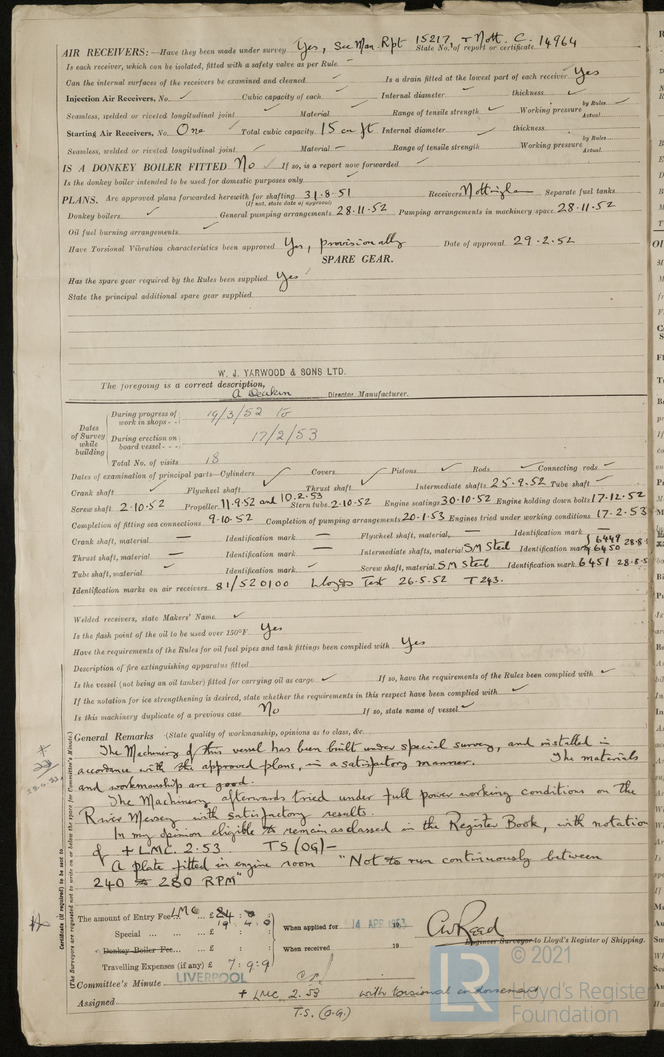 AIR RECEIVERS:—Have they been made under survey Yes, See Man. Rpt 15217 & Nott. C. 14964
State No. of report or certificate
Is each receiver, which can be isolated, fitted with a safety valve as per Rule
Can the internal surfaces of the receivers be examined and cleaned Is a drain fitted at the lowest part of each receiver Yes
Injection Air Receivers, No. Cubic capacity of each Internal diameter thickness
Seamless, welded or riveted longitudinal joint Material Range of tensile strength Working pressure by Rules Actual
Starting Air Receivers, No. One Total cubic capacity 15 cu ft Internal diameter thickness
Seamless, welded or riveted longitudinal joint Material Range of tensile strength Working pressure by Rules Actual
IS A DONKEY BOILER FITTED No If so, is a report now forwarded
Is the donkey boiler intended to be used for domestic purposes only
PLANS. Are approved plans forwarded herewith for shafting 31.8.51 Receivers Nottingham Separate fuel tanks
(If not, state date of approval)
Donkey boilers General pumping arrangements 28.11.52 Pumping arrangements in machinery space 28.11.52
Oil fuel burning arrangements
Have Torsional Vibration characteristics been approved Yes, provisionally Date of approval 29.2.52
SPARE GEAR.
Has the spare gear required by the Rules been supplied Yes
State the principal additional spare gear supplied
W. J. YARWOOD & SONS LTD.
The foregoing is a correct description,
A Deakin Director Manufacturer.
Dates of Survey while building
During progress of work in shops - - 19/3/52 to
During erection on board vessel - - - 17/2/53
Total No. of visits 18
Dates of examination of principal parts—Cylinders Covers Pistons Rods Connecting rods
Crank shaft Flywheel shaft Thrust shaft Intermediate shafts 25.9.52 Tube shaft
Screw shaft 2.10.52 Propeller 11.9.52 and 10.2.53 Stern tube 2.10.52 Engine seatings 30.10.52 Engine holding down bolts 17.12.52
Completion of fitting sea connections 9.10.52 Completion of pumping arrangements 20.1.53 Engines tried under working conditions 17.2.53
Crank shaft, material Identification mark Flywheel shaft, material Identification mark
Thrust shaft, material Identification mark Intermediate shafts, material SM Steel Identification marks 6449 6450 28.8.
Tube shaft, material Identification mark Screw shaft, material SM Steel Identification mark 6451 28.8.5
Identification marks on air receivers 81/520100 Lloyds Test 26.5.52 T 243.
Welded receivers, state Makers' Name
Is the flash point of the oil to be used over 150°F. Yes
Have the requirements of the Rules for oil fuel pipes and tank fittings been complied with Yes
Description of fire extinguishing apparatus fitted
Is the vessel (not being an oil tanker) fitted for carrying oil as cargo If so, have the requirements of the Rules been complied with
If the notation for ice strengthening is desired, state whether the requirements in this respect have been complied with
Is this machinery duplicate of a previous case No If so, state name of vessel
General Remarks (State quality of workmanship, opinions as to class, &c.
The Machinery of this vessel has been built under special survey, and installed in
accordance with the approved plans, in a satisfactory manner. The materials
and workmanship are good.
The Machinery afterwards tried under full power working conditions on the
River Mersey with satisfactory results.
In my opinion eligible to remain as classed in the Register Book, with notation
of + LMC. 2.53. TS (OG)—
A plate fitted in engine room "Not to run continuously between
240 to 280 RPM"
Certificate (if required) to be sent to
(The Surveyors are requested not to write on or below the space for Committee's Minute.)
The amount of Entry Fee LMC £
Special £
Donkey Boiler Fee £
Travelling Expenses (if any) £ 7 : 9 : 9
When applied for 14 APR 1953 19
When received 19
Engineer Surveyor to Lloyd's Register of Shipping.
LIVERPOOL
Committee's Minute
Assigned + LMC 2.53 with torsional endorsement
T.S. (O.G.)
LR
© 2021
Lloyd's Register
Foundation